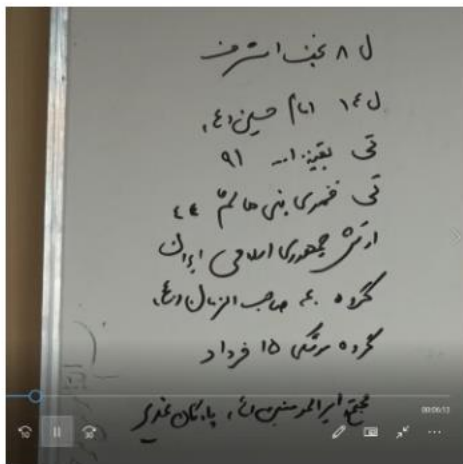 ل ۸ نجف اشرف
ل ۱۴ امام حسین (ع)
تی بقیة ا... ۹۱
تی قمر بنی هاشم ۴۴
ارتش جمهوری اسلامی ایران
گروه ۴۰ صاحب الزمان (ع)
گروه موشکی ۱۵ خرداد
مجتمع امیرالمومنین (ع)، پادگان غدیر
00:06:13
10
30